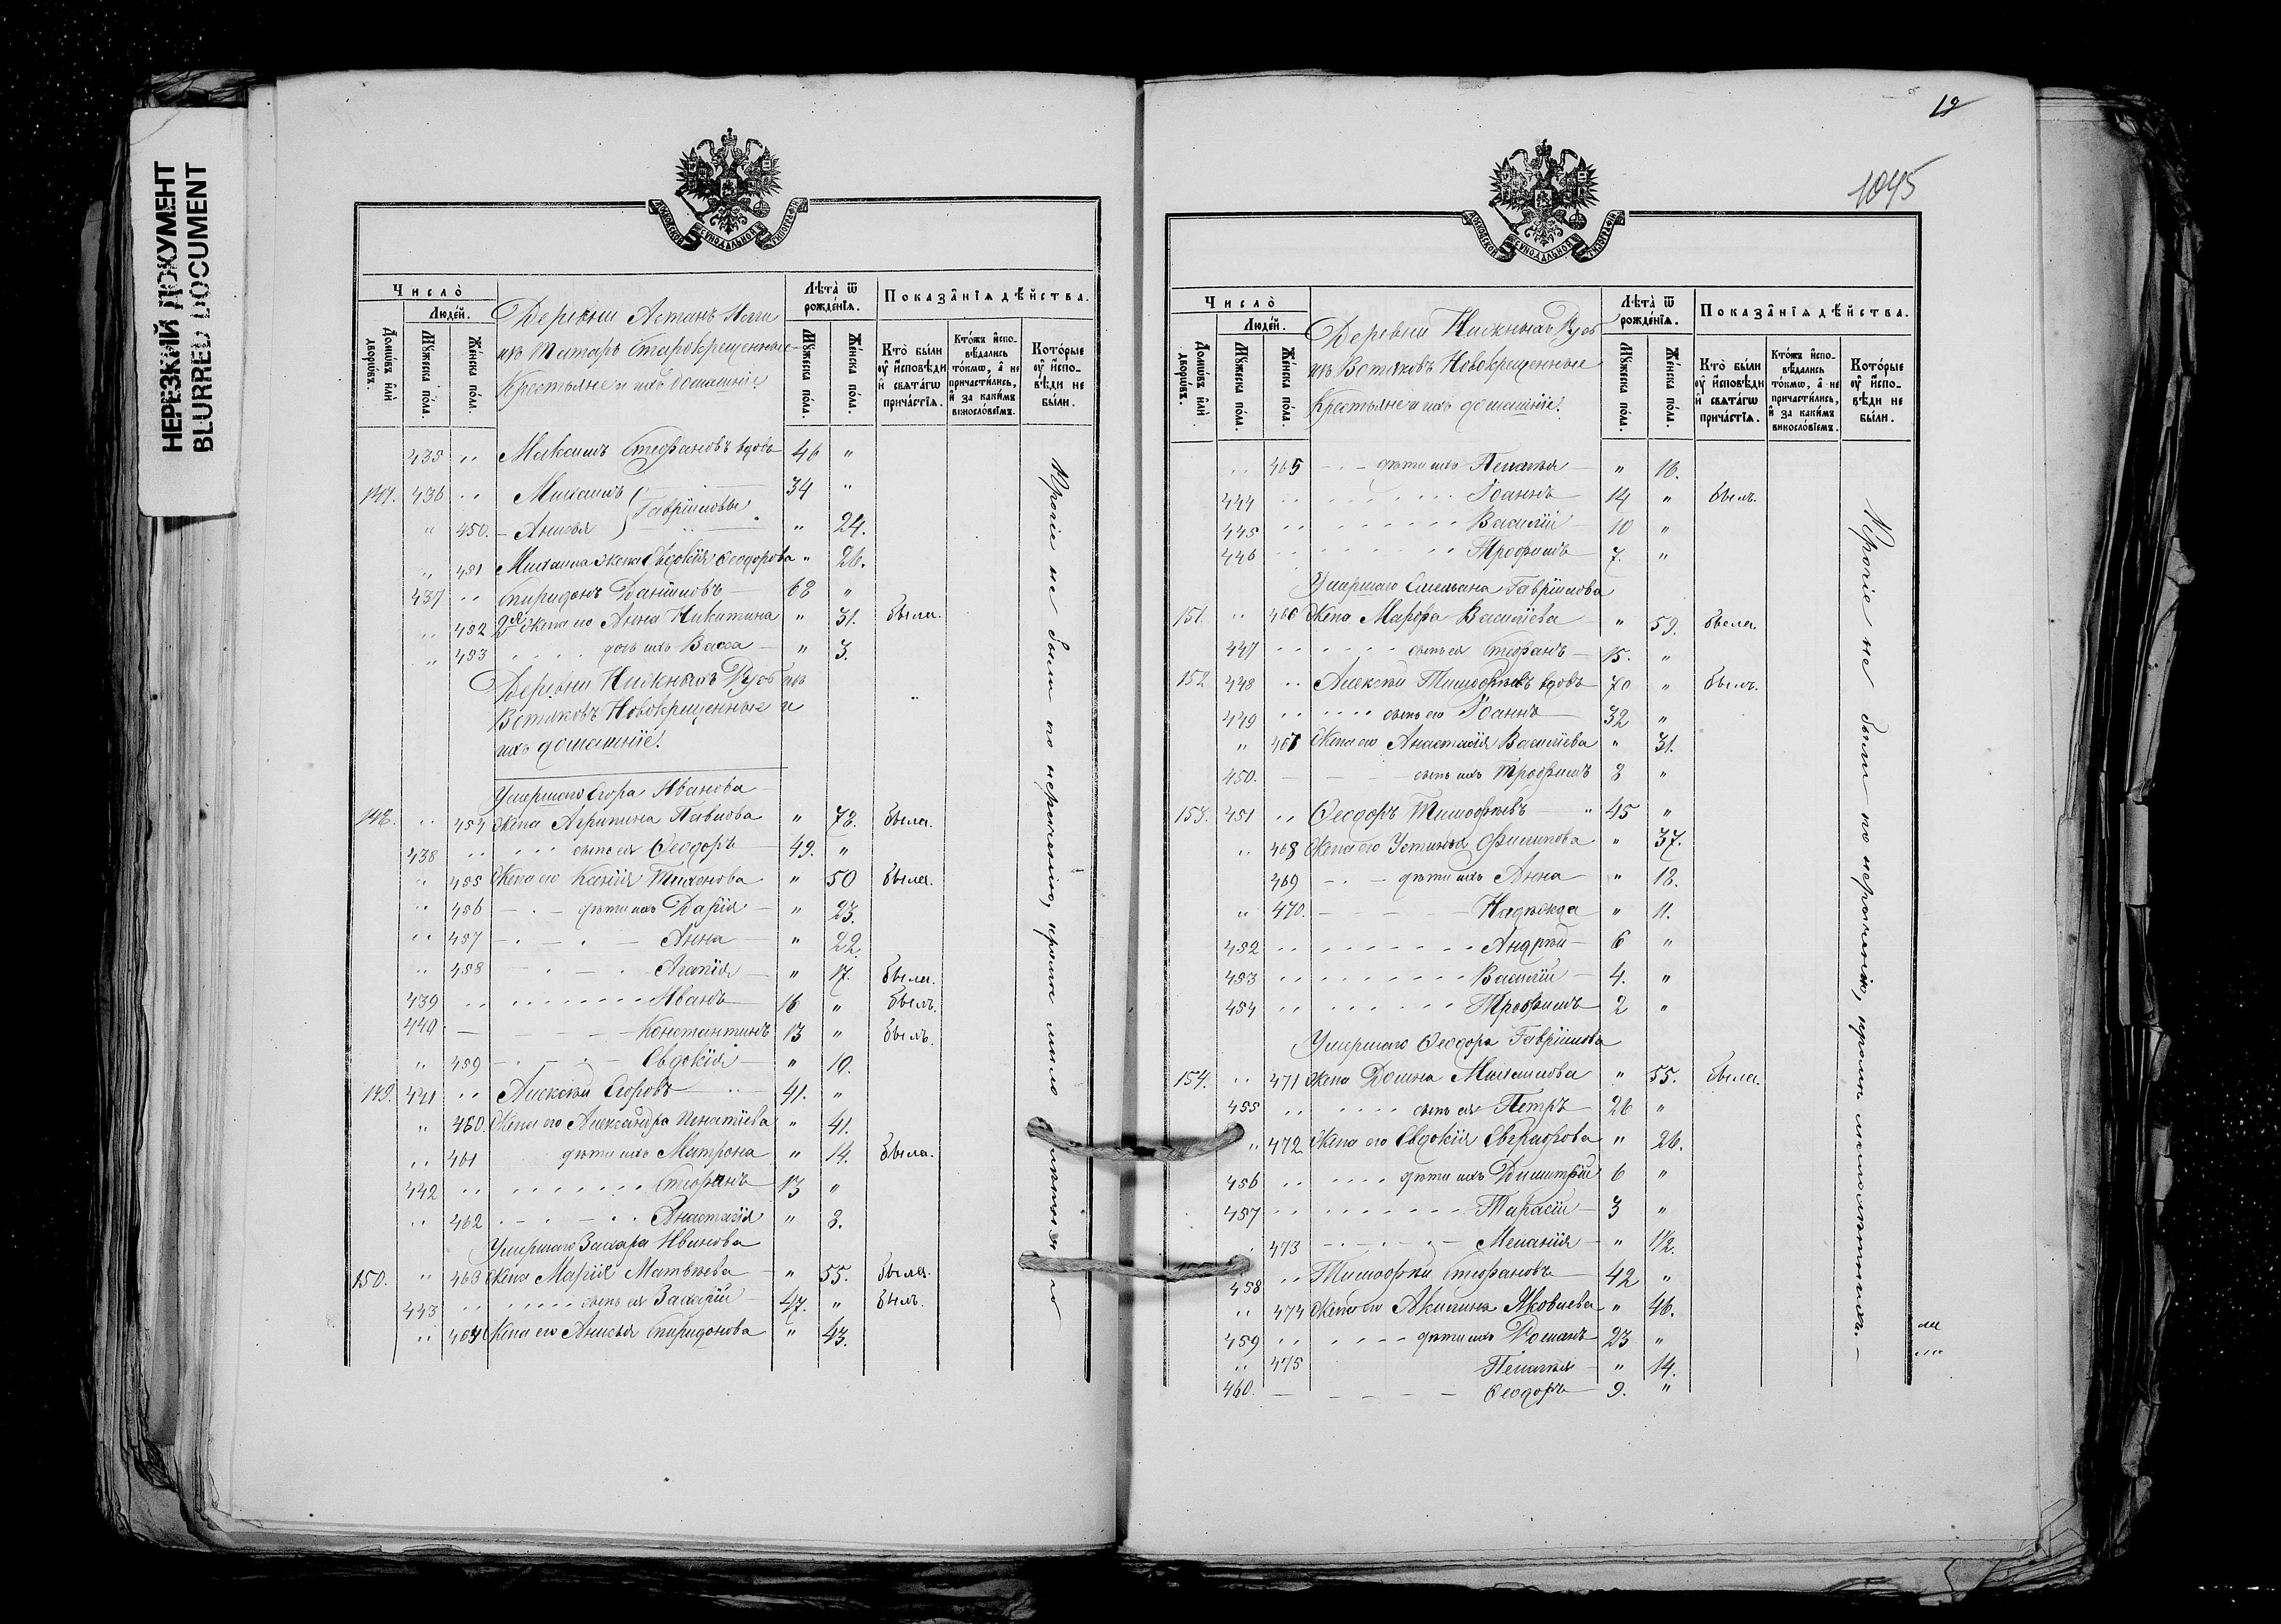 НЕРЕЗКИЙ ДОКУМЕНТ
BLURRED DOCUMENT
Число̀
Люде́й.
Домѡ́въ и҆лѝ дворѡ́въ.
Мꙋ́жеска по́ла.
Же́нска по́ла.
Деревни Астанъ Елги
изъ Татаръ Старокрещенные
Крестьяне и ихъ домашніе
Лѣта̀ ѿ рожде́нїѧ.
Мꙋ́жеска по́ла.
Же́нска по́ла.
Показа̑нїѧ дѣ́йства.
Кто̀ бы́ли оу҆ и҆сповѣ́ди и҆ свѧта́гѡ прича́стїѧ.
Кто́жъ и҆сповѣ́дались то́кмѡ, а҆ не причасти́лись, и҆ за каки́мъ виносло́вїемъ.
Кото́рые оу҆ и҆сповѣ́ди не бы́ли.
435 „ Максимъ Стефановъ вдовъ 46 „
147. 436 „ Михаилъ } Гавріиловы 34 „
„ 450. Анисья „ 24.
„ 451 Михаила жена Евдокія Ѳеодорова „ 26.
437 „ Спиридонъ Даніиловъ 68 „
„ 452 2ая Жена его Анна Никитина „ 31. была.
„ 453 дочь ихъ Васса „ 3.
Деревни Нижнихъ Русъ изъ
Вотяковъ Новокрещенные и
ихъ домашніе.
Умершаго Егора Иванова
148. „ 454 Жена Агрипина Павлова „ 78. была.
438 „ сынъ ея Ѳеодоръ 49. „
„ 455 Жена его Ксенія Тихонова „ 50 была.
„ 456 дѣти ихъ Дарія „ 23.
„ 457 Анна „ 22.
„ 458 Агапія „ 17. была.
439 „ Иванъ 16 „ былъ.
440 Константинъ 13 „ былъ.
„ 459 Евдокія „ 10.
149. 441 „ Алексѣй Егоровъ 41. „
„ 460. Жена его Александра Игнатіева „ 41.
„ 461 дѣти ихъ Матрона „ 14. была.
442 „ Стефанъ 13 „
„ 462 Анастасія „ 8.
Умершаго Захара Иванова
150. „ 463 Жена Марія Матвѣева „ 55. была.
443 „ сынъ ея Захарій 47. „ былъ.
„ 464 Жена его Анисья Спиридонова „ 43.
Прочіе не были по нераченію, кромѣ малолѣтнихъ
12
1045
Число̀
Люде́й.
Домѡ́въ и҆лѝ дворѡ́въ.
Мꙋ́жеска по́ла.
Же́нска по́ла.
Деревни Нижнихъ Русъ
изъ Вотяковъ Новокрещенные
Крестьяне и ихъ домашніе.
Лѣта̀ ѿ рожде́нїѧ.
Мꙋ́жеска по́ла.
Же́нска по́ла.
Показа̑нїѧ дѣ́йства.
Кто̀ бы́ли оу҆ и҆сповѣ́ди и҆ свѧта́гѡ прича́стїѧ.
Кто́жъ и҆сповѣ́дались то́кмѡ, а҆ не причасти́лись, и҆ за каки́мъ виносло́вїемъ.
Кото́рые оу҆ и҆сповѣ́ди не бы́ли.
„ 465 дѣти ихъ Пелагея „ 16.
444 „ Іоаннъ 14 „ былъ.
445 „ Василій 10 „
446 „ Трофимъ 7. „
Умершаго Емельяна Гавріилова
151. „ 466 Жена Марфа Василіева „ 59. была.
447 „ сынъ ея Стефанъ 15. „
152 448 „ Алексѣй Тимофѣевъ вдовъ 70 „ былъ.
449 „ сынъ его Іоаннъ 32 „
„ 467 Жена его Анастасія Василіева „ 31.
450. сынъ ихъ Трофимъ 8 „
153. 451 „ Ѳеодоръ Тимофѣевъ 45 „
„ 468 Жена его Устинья Филипова „ 37.
469 дѣти ихъ Анна „ 18.
„ 470. Надежда „ 11.
452 „ Андрей 6 „
453 „ Василій 4. „
454 „ Трофимъ 2 „
Умершаго Ѳеодора Гавріилова
154. „ 471 Жена Домна Михаилова „ 55. была.
455 „ сынъ ея Петръ 26 „
„ 472. Жена его Евдокія Евгр­афова „ 26.
456 „ дѣти ихъ Димитрій 6 „
457 „ Тарасій 3 „
473 Меланія „ 1/2.
458 „ Тимофей Стефановъ 42 „
„ 474 Жена его Акилина Яковлева „ 46.
459 „ дѣти ихъ Романъ 23 „
„ 475 Пелагея „ 14.
460. Ѳеодоръ 9. „
Прочіе не были по нераченію, кромѣ малолѣтнихъ.